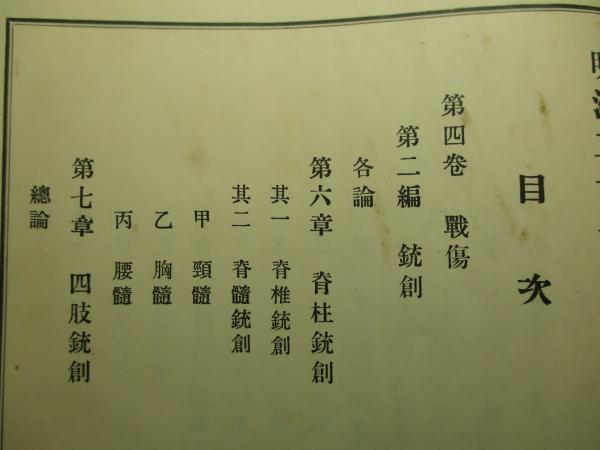 明治二十
目次
第四卷　戰傷
第二編　銃創
各論
第六章　脊柱銃創
其一　脊椎銃創
其二　脊髓銃創
甲　頸髓
乙　胸髓
丙　腰髓
第七章　四肢銃創
總論